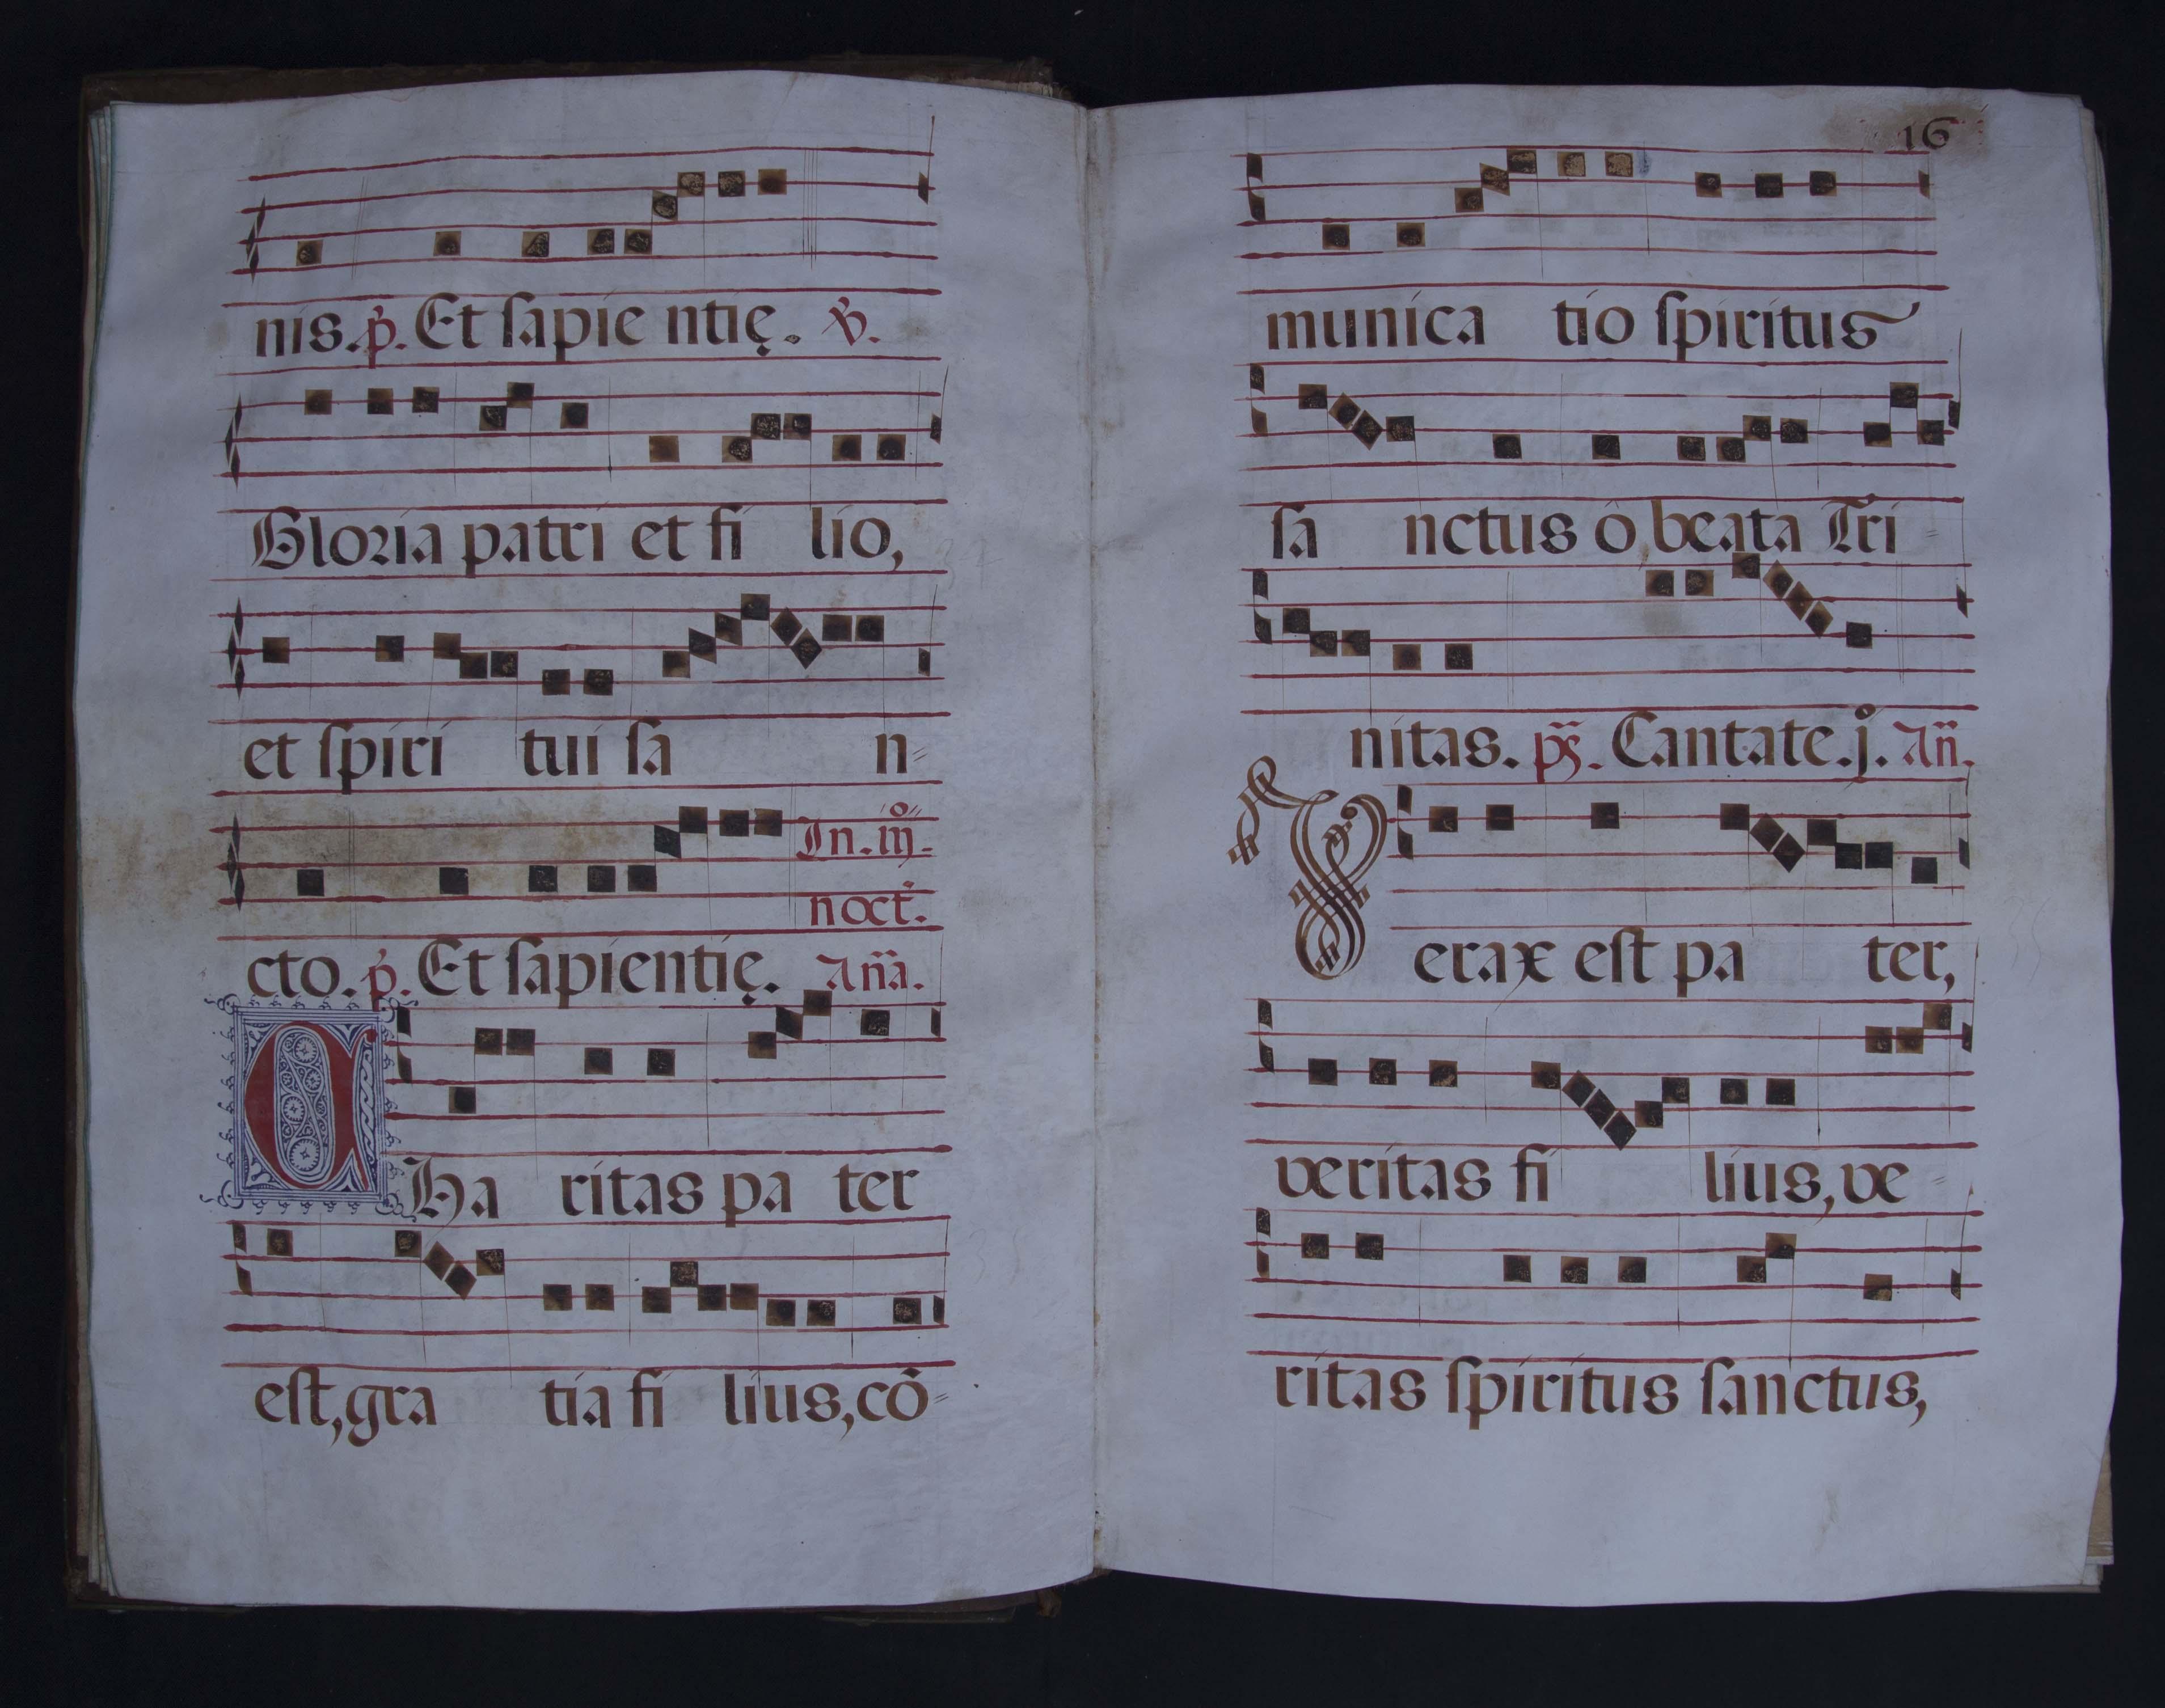 nis. p̃. Et ſapie ntię. ℣.
Gloria patri et fi lio,
et ſpiri tui ſa n=
In. iij.º
noct̃.
cto. p̃. Et ſapientię. Añа.
CHa ritas pa ter
eſt, gra tia fi lius, cõ=
16
munica tio ſpiritus
ſa nctus ô beata Tri=
nitas. p̃s. Cantate. j.º Añ.
Verax eſt pa ter,
veritas fi lius, ve=
ritas ſpiritus ſanctus,